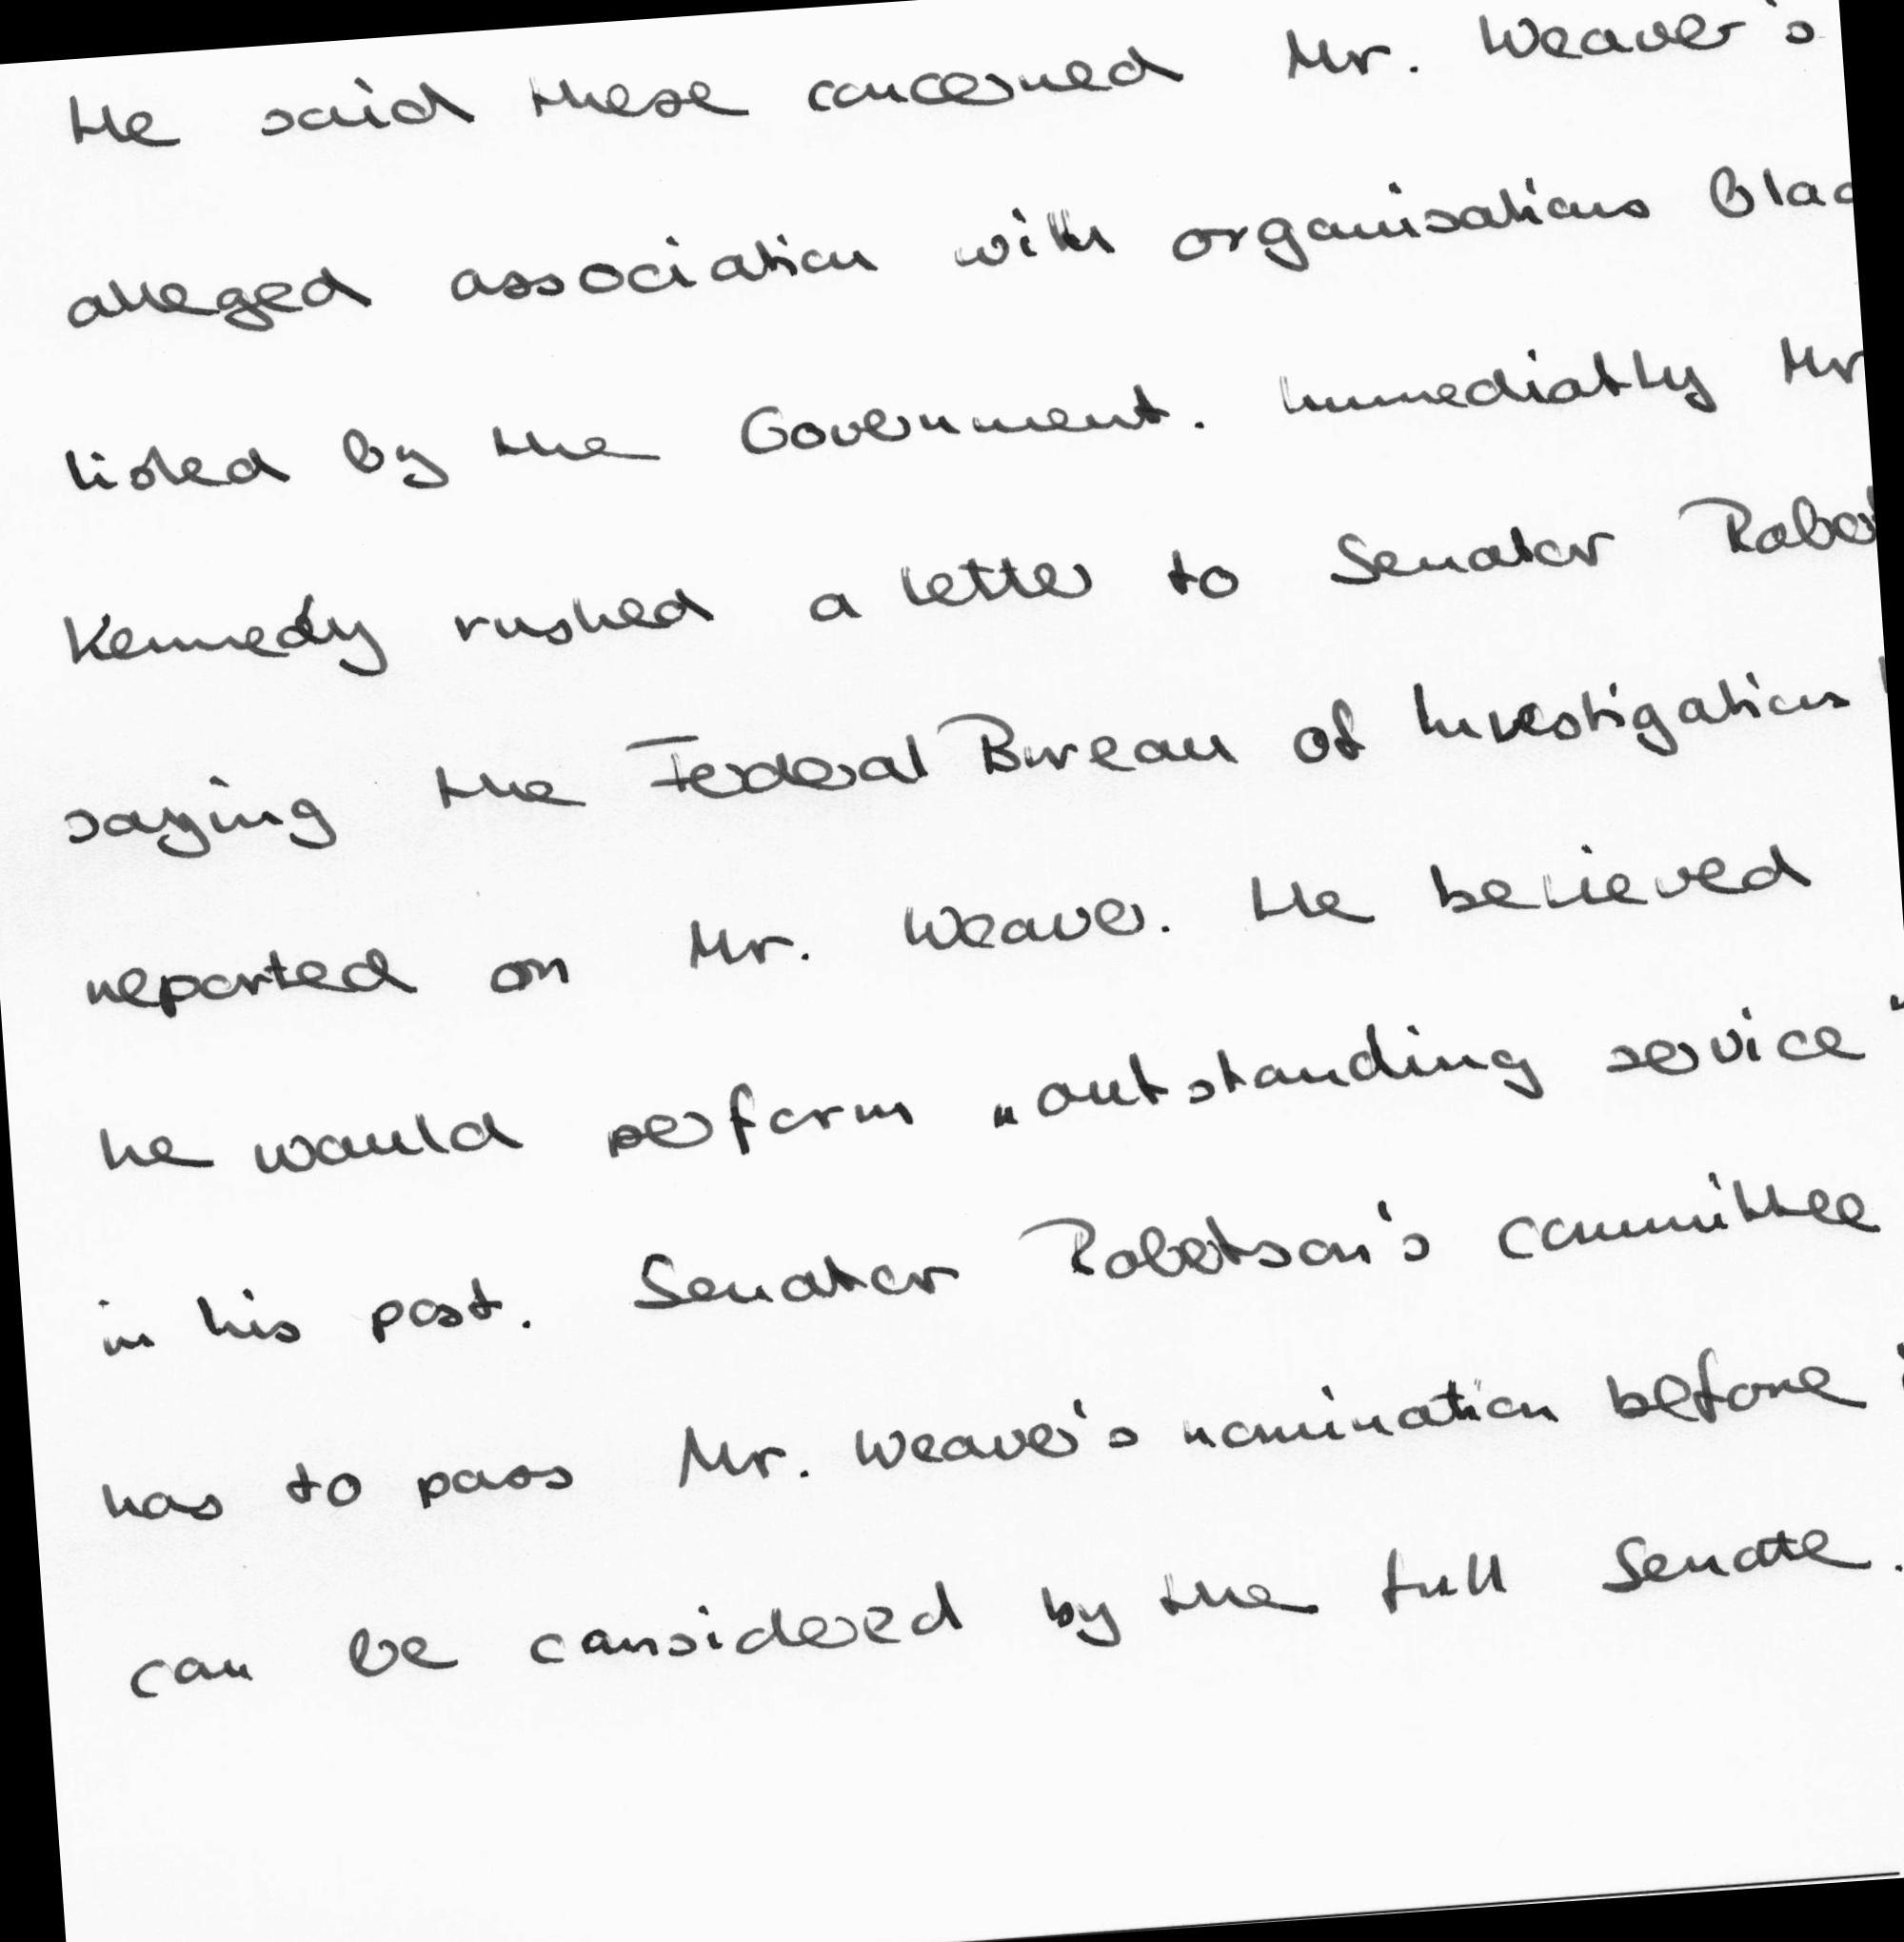 He said these concerned Mr. Weaver's
alleged association with organisations
listed by the Government. Immediatly Mr
Kennedy rushed a letter to Senator
saying the Federal Bureau of Investigations
reported on Mr. Weaver. He believed
he would perform „outstanding service"
in his post. Senator Robertson's committee
has to pass Mr. Weaver's nomination before
can be considered by the full Senate.